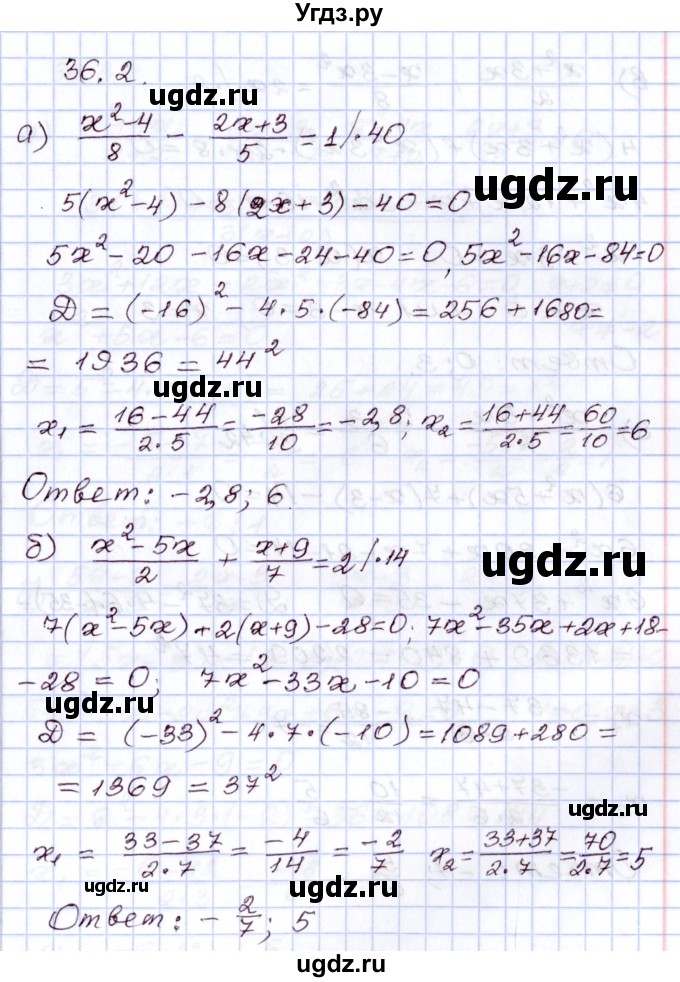 Угдз.ру
36.2.
ugdz.ru
а) (x²-4)/8 - (2x+3)/5 = 1 /·40
ugdz.ru
5(x²-4)-8(2x+3)-40=0
5x²-20-16x-24-40=0, 5x²-16x-84=0
Д = (-16)² - 4·5·(-84) = 256+1680=
= 1936 = 44²
ugdz.ru
x₁ = (16-44)/(2·5) = -28/10 = -2,8; x₂ = (16+44)/(2·5) = 60/10 = 6
ugdz.ru
Ответ: -2,8; 6.
б) (x²-5x)/2 + (x+9)/7 = 2 /·14
ugdz.ru
7(x²-5x)+2(x+9)-28=0; 7x²-35x+2x+18-
-28=0; 7x²-33x-10=0
ugdz.ru
Д = (-33)² - 4·7·(-10) = 1089+280 =
= 1369 = 37²
ugdz.ru
x₁ = (33-37)/(2·7) = -4/14 = -2/7 x₂ = (33+37)/(2·7) = 70/(2·7) = 5
ugdz.ru
ugdz.ru
Ответ: -2/7; 5
ugdz.ru
ugdz.ru